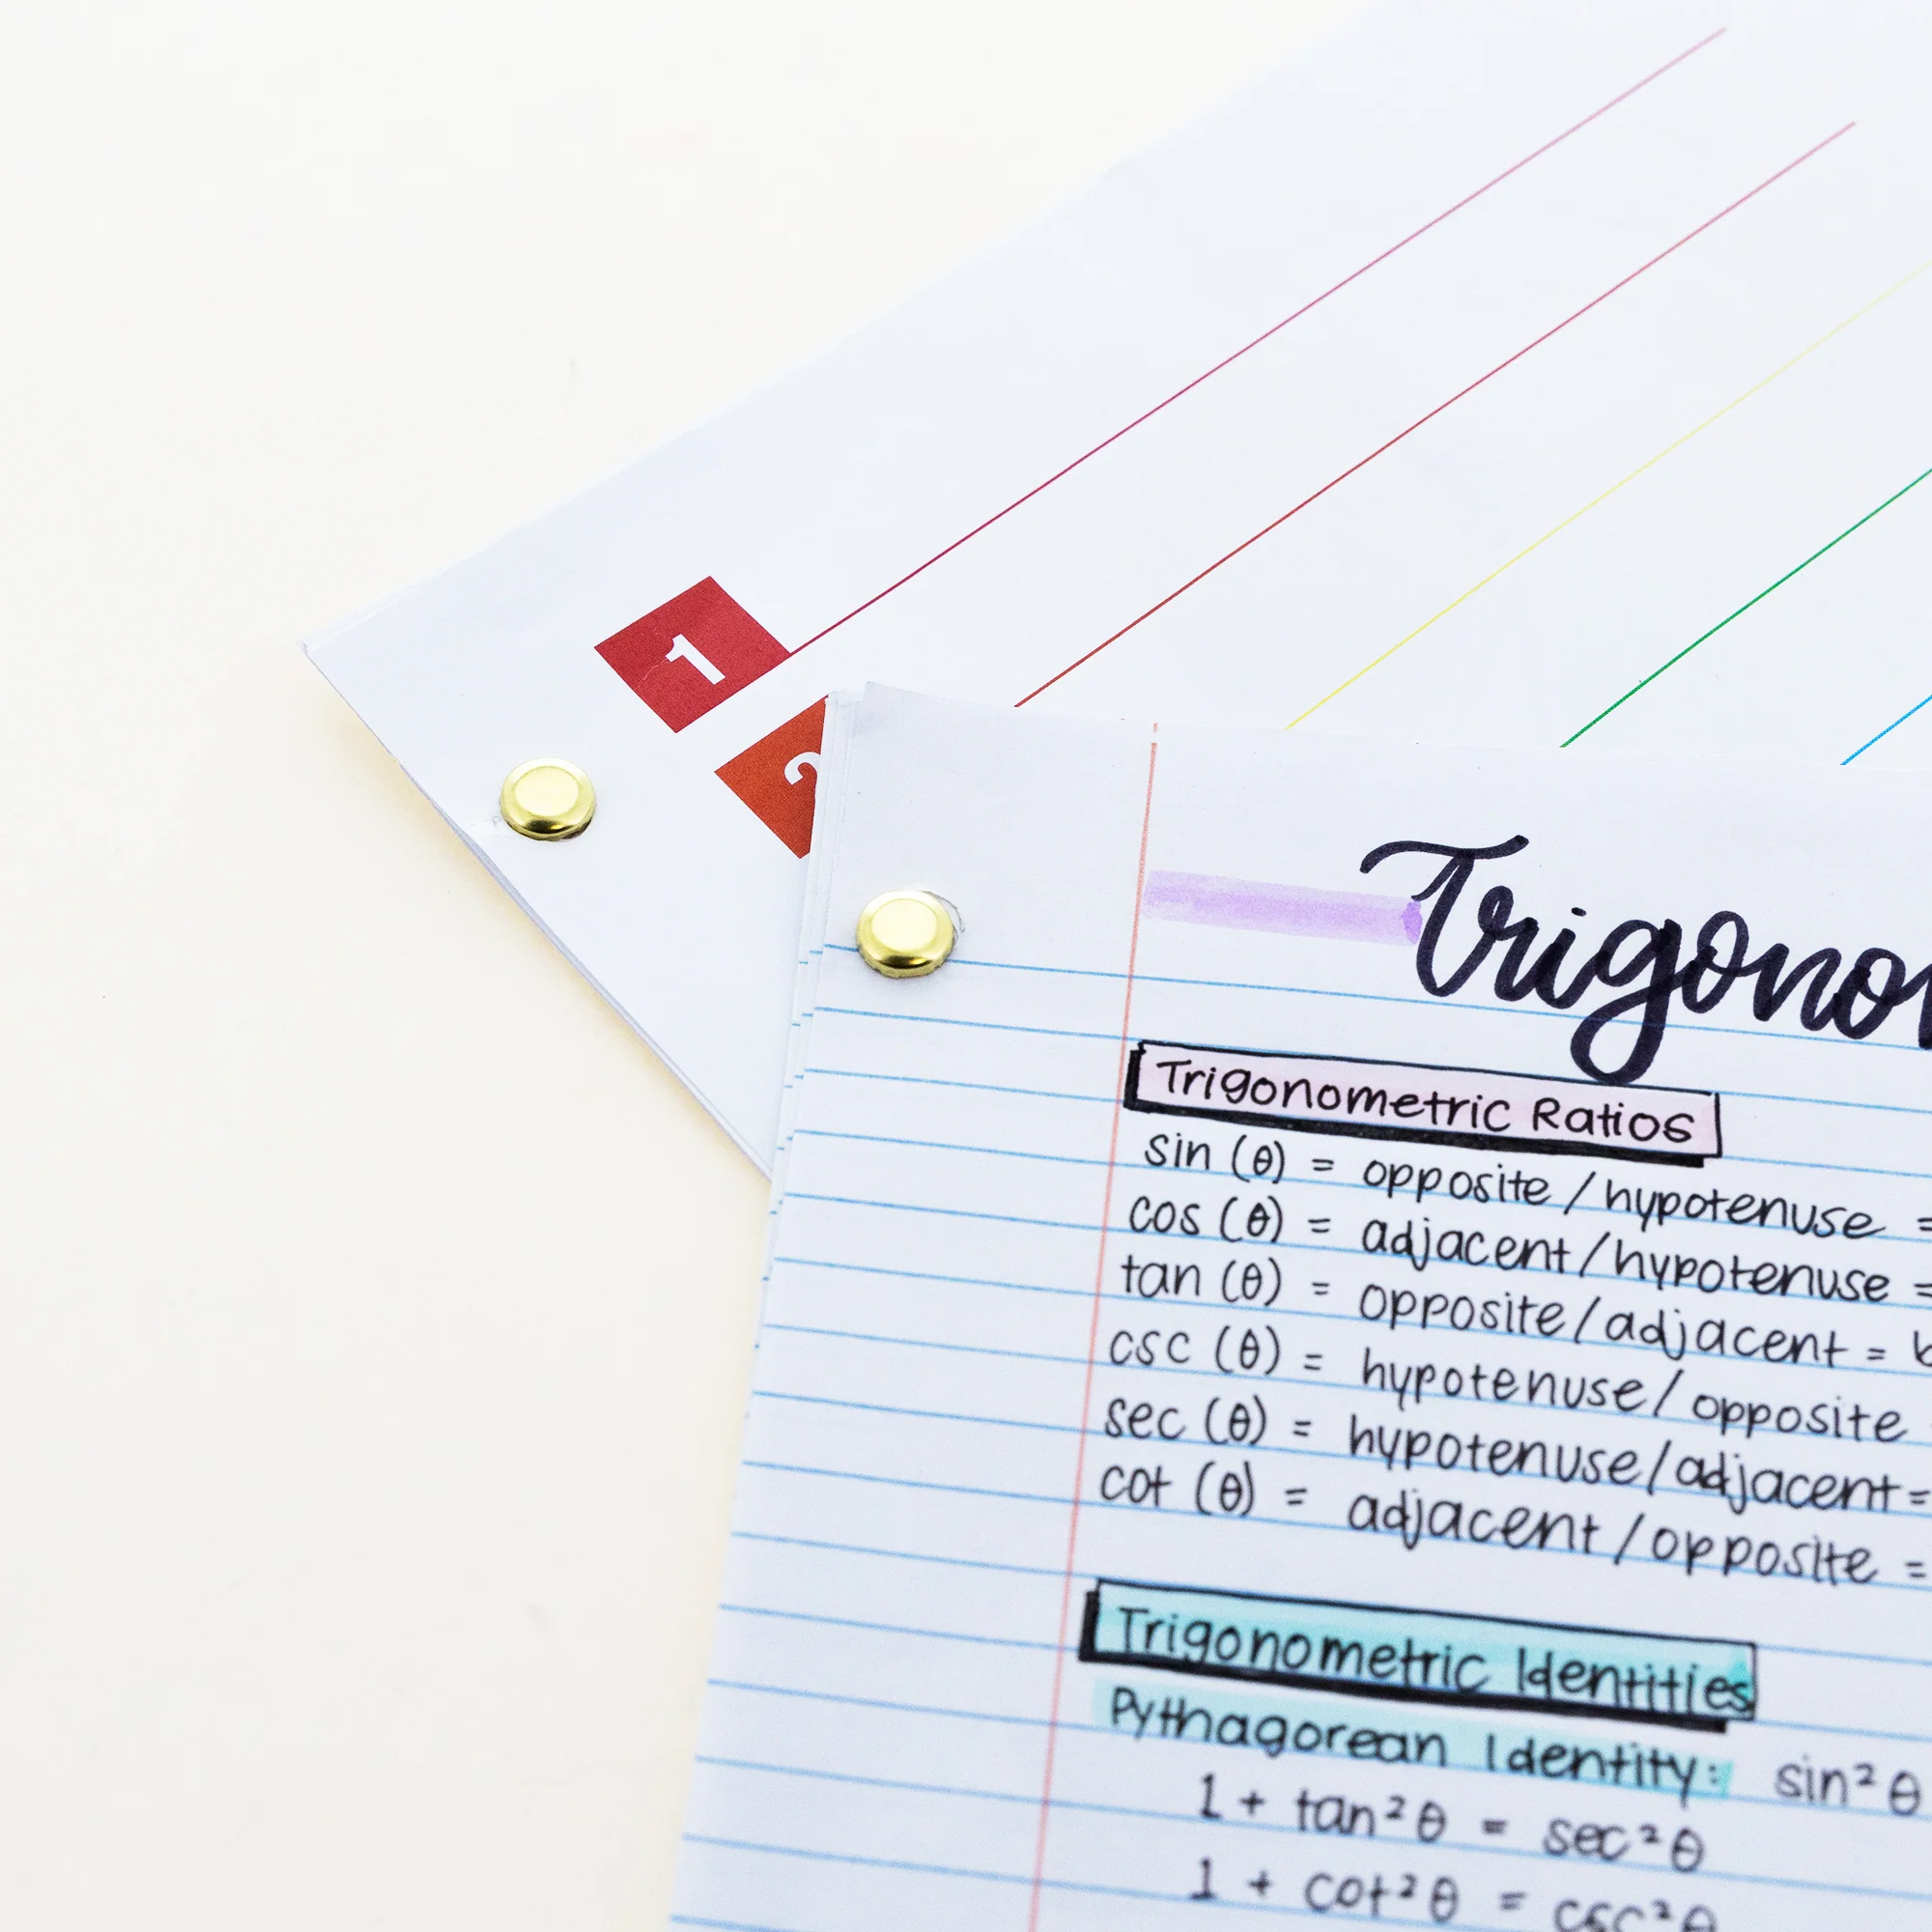 1
2
Trigono
Trigonometric Ratios
sin (θ) = opposite / hypotenuse =
cos (θ) = adjacent / hypotenuse =
tan (θ) = opposite / adjacent =
csc (θ) = hypotenuse / opposite
sec (θ) = hypotenuse / adjacent =
cot (θ) = adjacent / opposite =
Trigonometric Identities
Pythagorean Identity: sin² θ
1 + tan² θ = sec² θ
1 + cot² θ = csc² θ